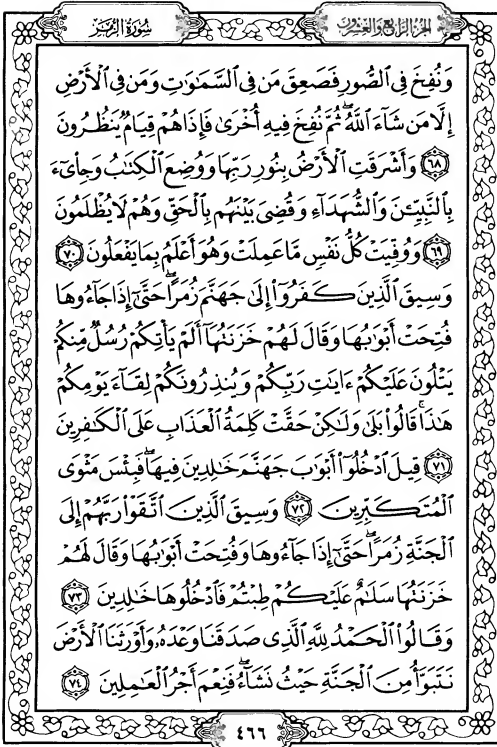 الجزء الرابع والعشرون
سورة الزمر
وَنُفِخَ فِي ٱلصُّورِ فَصَعِقَ مَن فِي ٱلسَّمَٰوَٰتِ وَمَن فِي ٱلْأَرْضِ
إِلَّا مَن شَآءَ ٱللَّهُ ۖ ثُمَّ نُفِخَ فِيهِ أُخْرَىٰ فَإِذَا هُمْ قِيَامٌ يَنظُرُونَ
٦٨ وَأَشْرَقَتِ ٱلْأَرْضُ بِنُورِ رَبِّهَا وَوُضِعَ ٱلْكِتَٰبُ وَجِا۟ىٓءَ
بِٱلنَّبِيِّـۧنَ وَٱلشُّهَدَآءِ وَقُضِىَ بَيْنَهُم بِٱلْحَقِّ وَهُمْ لَا يُظْلَمُونَ
٦٩ وَوُفِّيَتْ كُلُّ نَفْسٍ مَّا عَمِلَتْ وَهُوَ أَعْلَمُ بِمَا يَفْعَلُونَ ٧٠
وَسِيقَ ٱلَّذِينَ كَفَرُوٓا۟ إِلَىٰ جَهَنَّمَ زُمَرًا ۖ حَتَّىٰٓ إِذَا جَآءُوهَا
فُتِحَتْ أَبْوَٰبُهَا وَقَالَ لَهُمْ خَزَنَتُهَآ أَلَمْ يَأْتِكُمْ رُسُلٌ مِّنكُمْ
يَتْلُونَ عَلَيْكُمْ ءَايَٰتِ رَبِّكُمْ وَيُنذِرُونَكُمْ لِقَآءَ يَوْمِكُمْ
هَٰذَا ۚ قَالُوا۟ بَلَىٰ وَلَٰكِنْ حَقَّتْ كَلِمَةُ ٱلْعَذَابِ عَلَى ٱلْكَٰفِرِينَ
٧١ قِيلَ ٱدْخُلُوٓا۟ أَبْوَٰبَ جَهَنَّمَ خَٰلِدِينَ فِيهَا ۖ فَبِئْسَ مَثْوَى
ٱلْمُتَكَبِّرِينَ ٧٢ وَسِيقَ ٱلَّذِينَ ٱتَّقَوْا۟ رَبَّهُمْ إِلَى
ٱلْجَنَّةِ زُمَرًا ۖ حَتَّىٰٓ إِذَا جَآءُوهَا وَفُتِحَتْ أَبْوَٰبُهَا وَقَالَ لَهُمْ
خَزَنَتُهَا سَلَٰمٌ عَلَيْكُمْ طِبْتُمْ فَٱدْخُلُوهَا خَٰلِدِينَ ٧٣
وَقَالُوا۟ ٱلْحَمْدُ لِلَّهِ ٱلَّذِى صَدَقَنَا وَعْدَهُۥ وَأَوْرَثَنَا ٱلْأَرْضَ
نَتَبَوَّأُ مِنَ ٱلْجَنَّةِ حَيْثُ نَشَآءُ ۖ فَنِعْمَ أَجْرُ ٱلْعَٰمِلِينَ ٧٤
٤٦٦